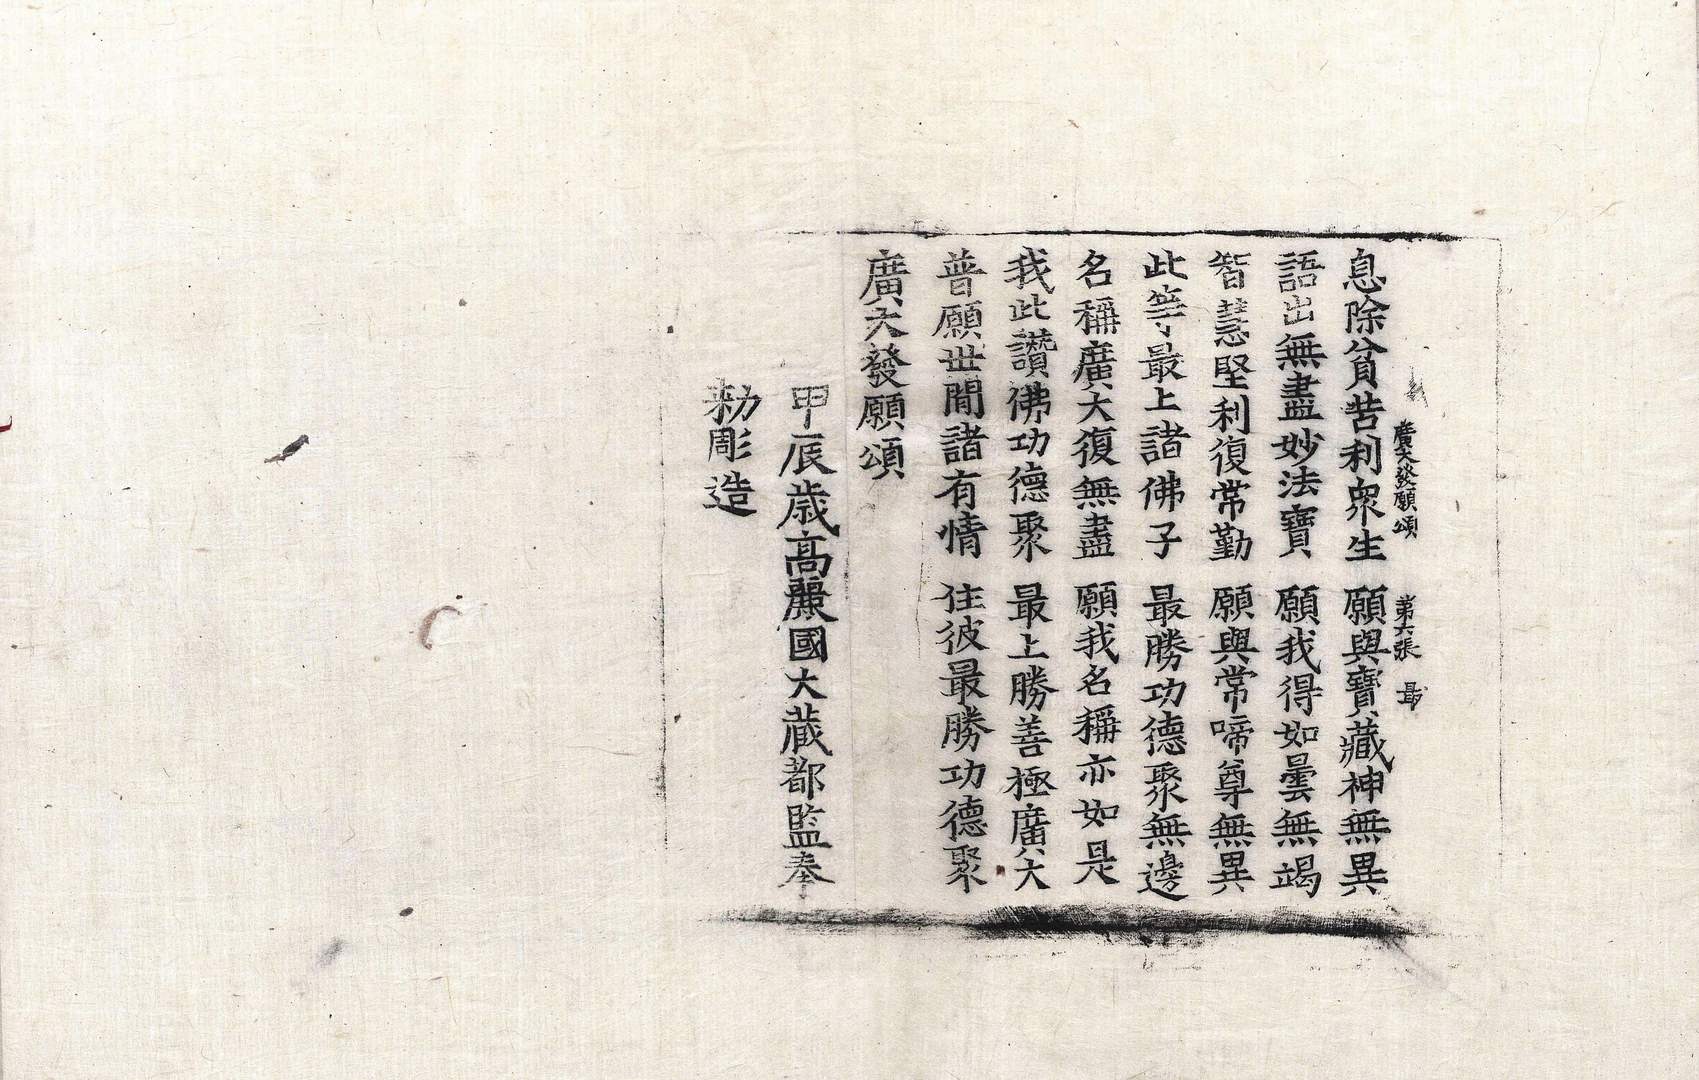 廣大發願頌 第六張 最
息除貧苦利衆生 願與寶藏神無異
語出無盡妙法寶 願我得如曇無竭
智慧堅利復常勤 願與常啼尊無異
此等最上諸佛子 最勝功德聚無邊
名稱廣大復無盡 願我名稱亦如是
我此讚佛功德聚 最上勝善極廣大
普願世間諸有情 住彼最勝功德聚
廣大發願頌
甲辰歳高麗國大藏都監奉
勑彫造